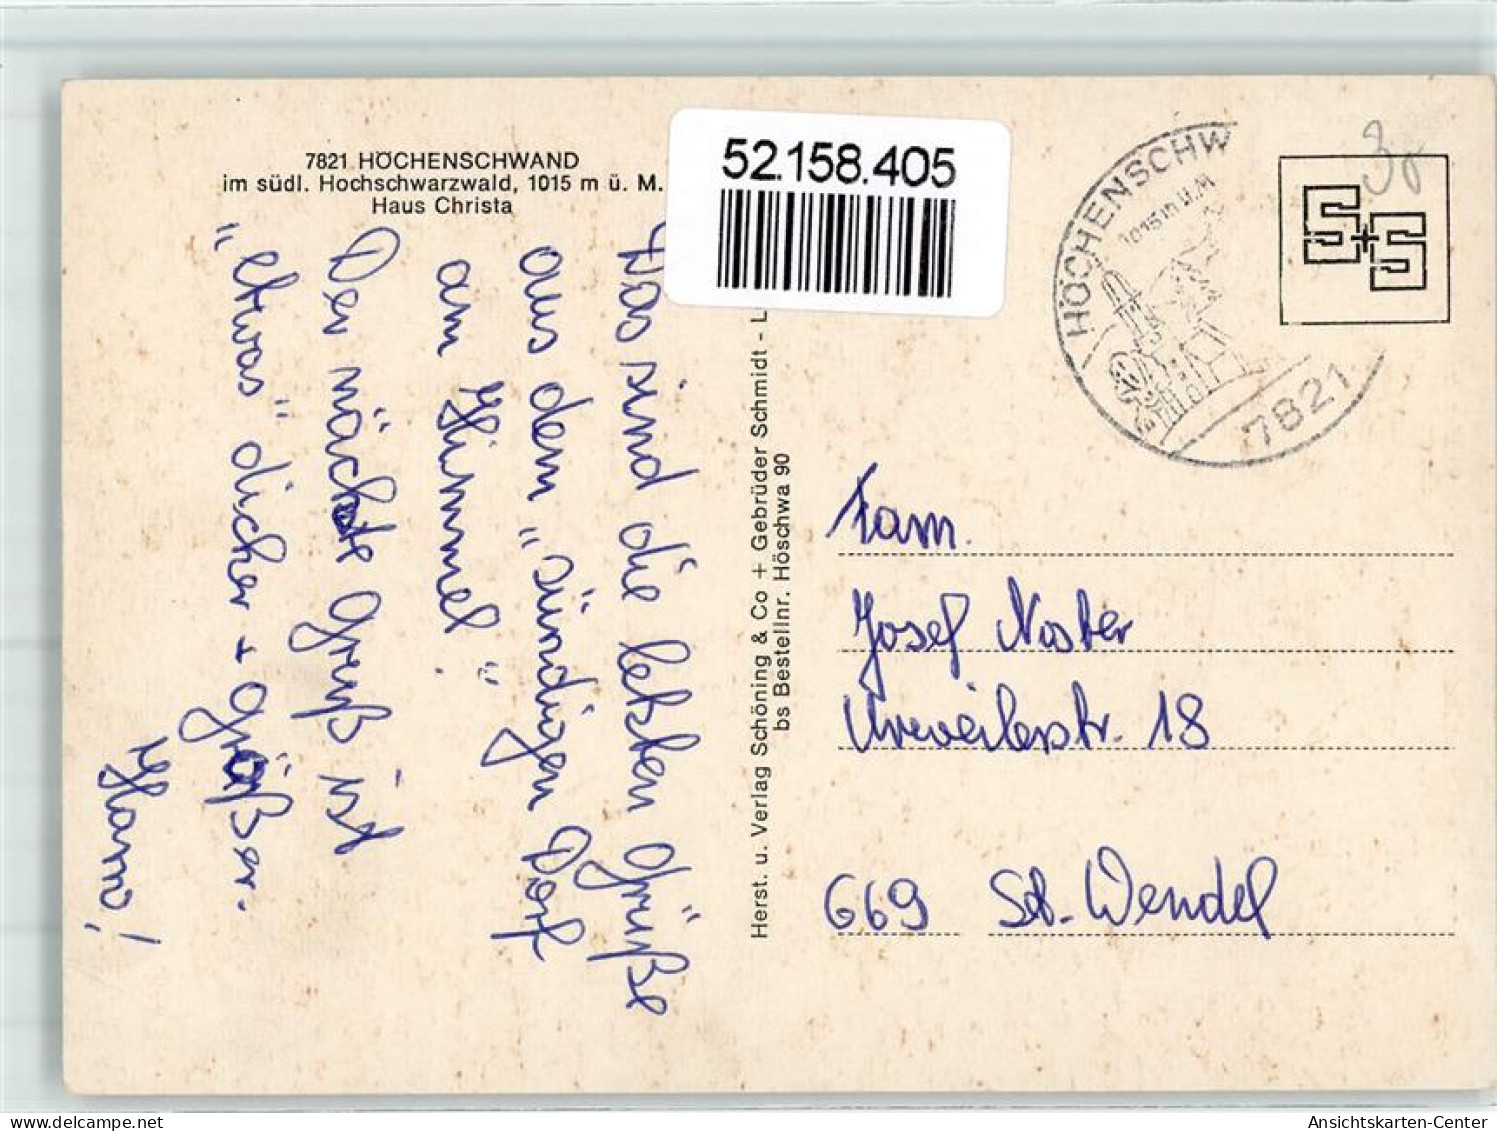 7821 HÖCHENSCHWAND
im südl. Hochschwarzwald, 1015 m ü. M.
Haus Christa
52.158.405
HÖCHENSCHW
1015 m ü.M
7821
30
S+S
Das sind die letzten Grüße
aus dem „sündigen Dorf
am Himmel".
Der nächste Gruß ist
„etwas" dicker + größer.
Hanno!
Herst. u. Verlag Schöning & Co + Gebrüder Schmidt - L
bs Bestellnr. Höschwa 90
Fam.
Josef
Urweilerstr. 18
669 St. Wendel
Ansichtskarten-Center